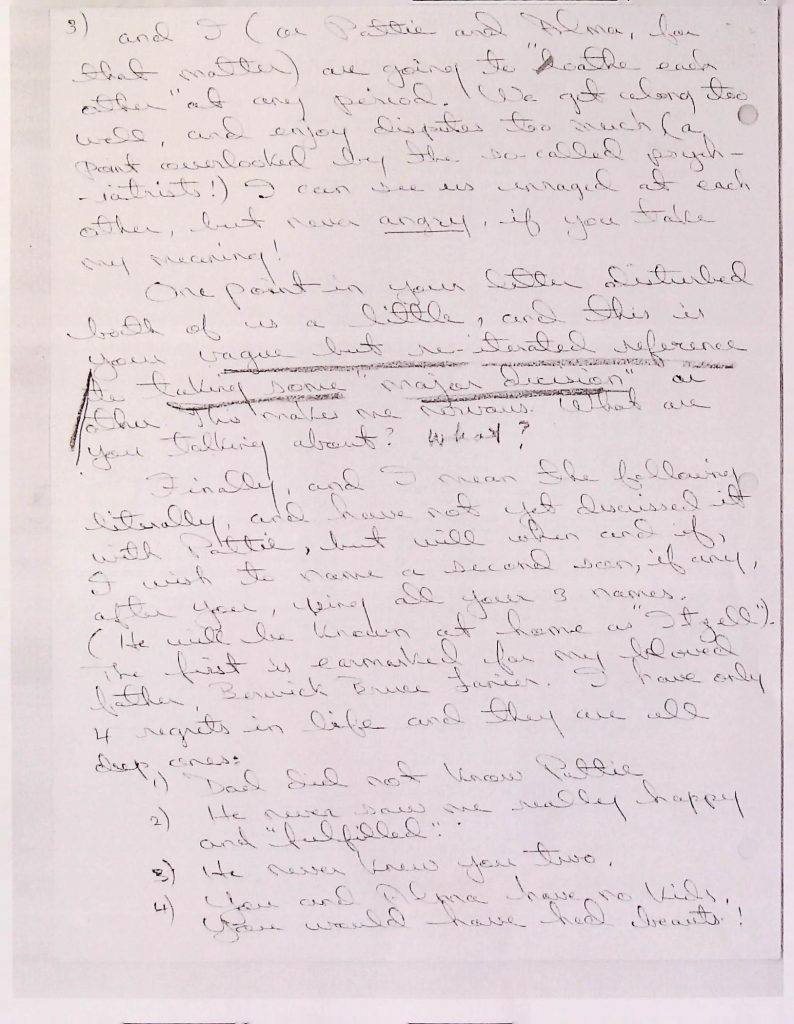 3) and I (or Pattie and Alma, for
that matter) are going to "loathe each
other" at any period. We get along too
well, and enjoy disputes too much (a
point overlooked by the so-called psych-
-iatrists!) I can see us enraged at each
other, but never angry, if you take
my meaning!
One point in your letter disturbed
both of us a little, and this is
your vague but re-iterated reference
to taking some "major decision" or
other. This makes me nervous. What are
you talking about? What?
Finally, and I mean the following
literally, and have not yet discussed it
with Pattie, but will when and if,
I wish to name a second son, if any,
after you, using all your 3 names.
(He will be known at home as "Itzell").
The first is earmarked for my beloved
father, Berwick Bruce Lanier. I have only
4 regrets in life and they are all
deep ones:
1) Dad did not know Pattie
2) He never saw me really happy
and "fulfilled".
3) He never knew you two.
4) You and Alma have no kids.
You would have had beauts!